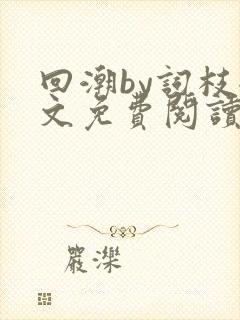 回潮by詞枝
文免費閱讀
嚴濼